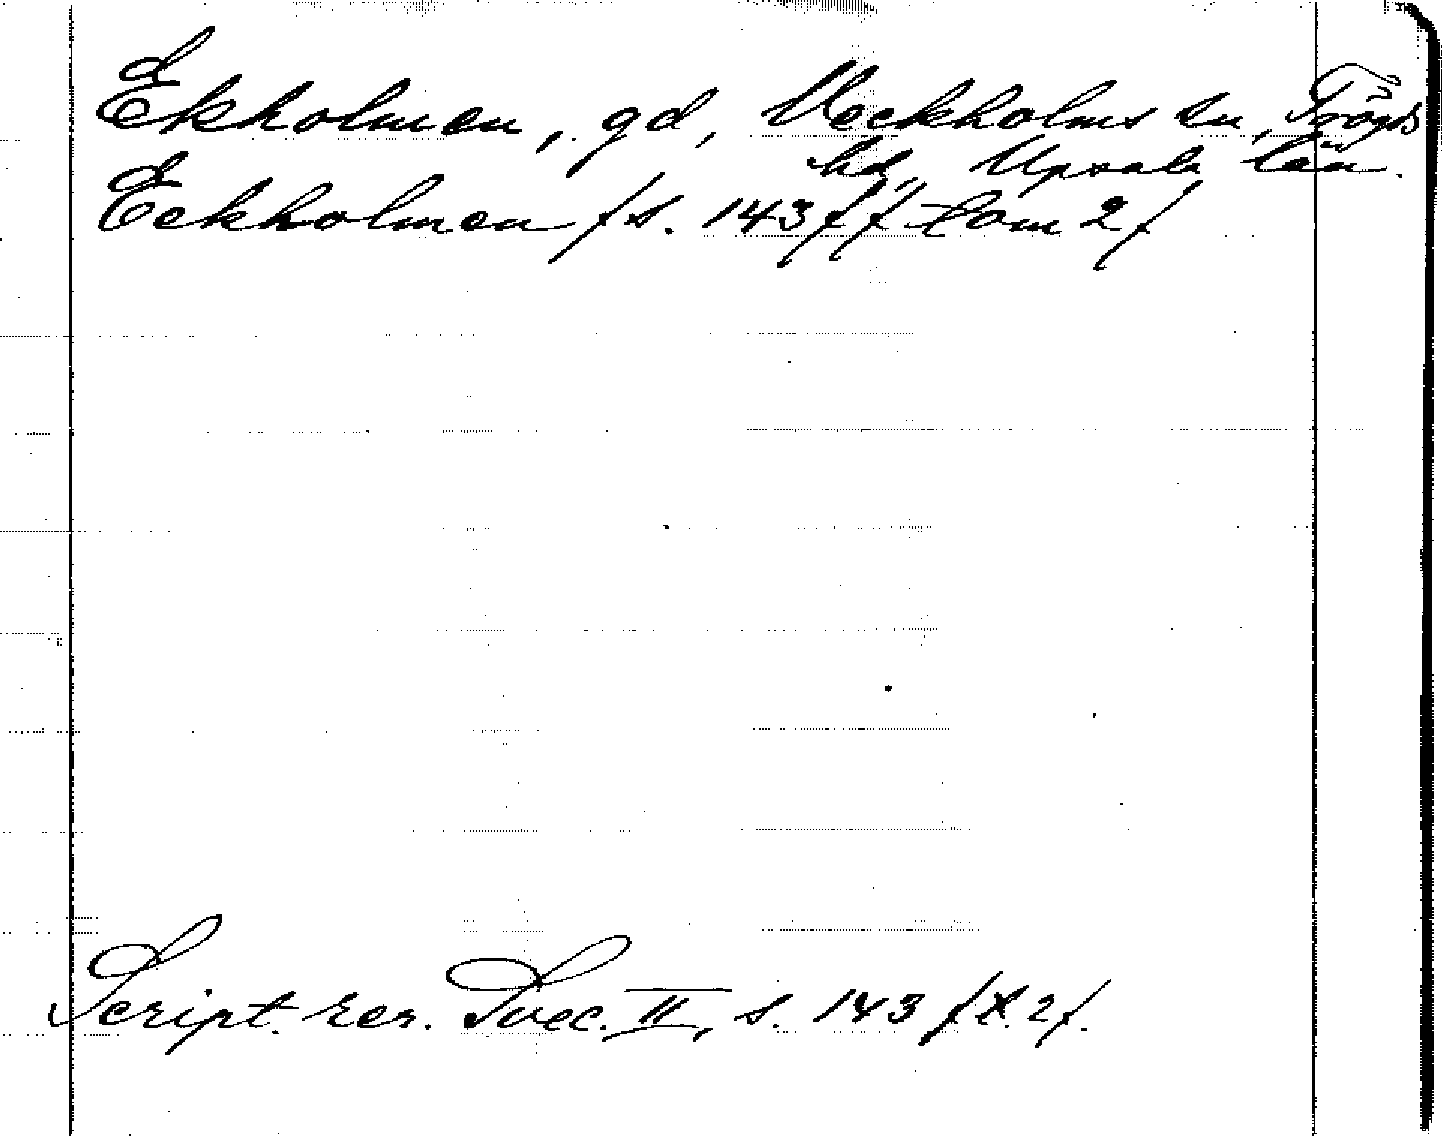 Ekholmen, gd, Veckholms sn, Trögds
hd, Upsala län.
Eckholmen /s. 143/ tom 2/
Script. rer. Svec. II, s. 143 /t. 2/.